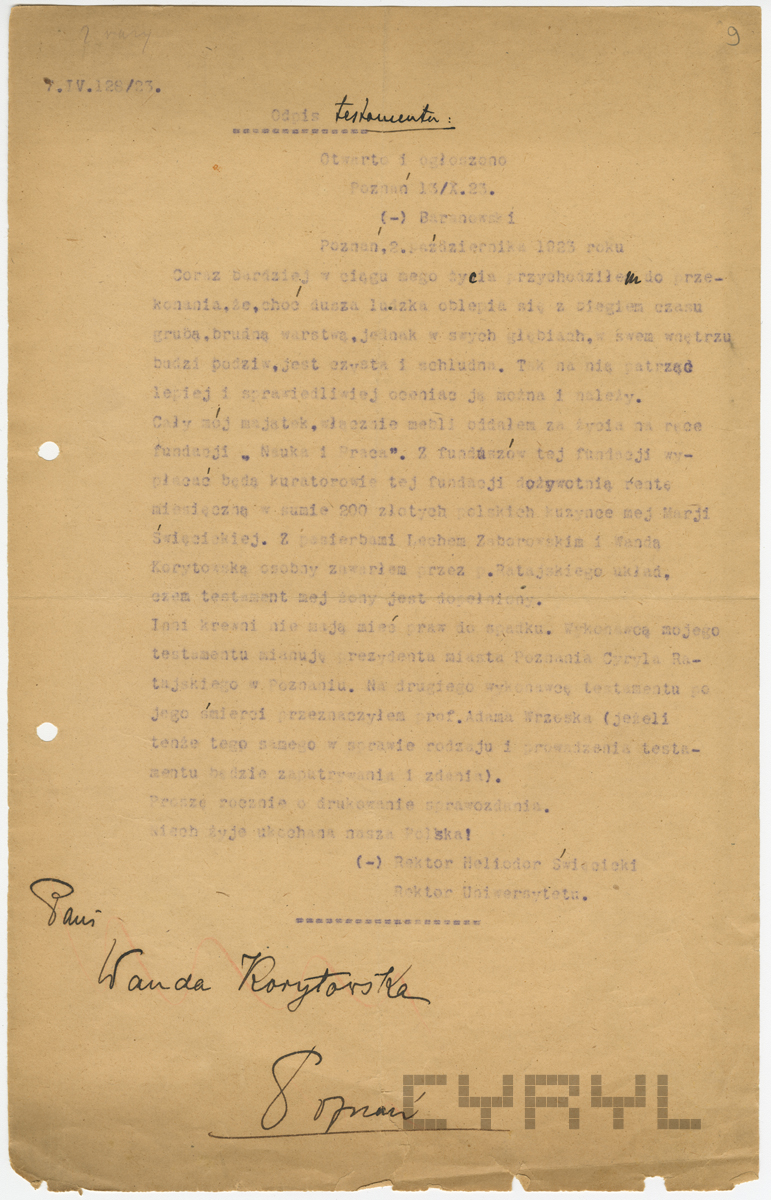 9
7.IV.128/23.
Odpis testamentu:
Otwarto i ogłoszono
Poznań 13/X.23.
(-) Baranowski
Poznań, 2.października 1923 roku
Coraz bardziej w ciągu mego życia przychodziłem do prze-
konania,że,choć dusza ludzka oblepia się z biegiem czasu
grubą,brudną warstwą,jednak w swych głębiach,w swem wnętrzu
budzi podziw,jest czysta i schludna. Tak na nią patrząc
lepiej i sprawiedliwiej oceniac ją można i należy.
Cały mój majątek,włącznie mebli oddałem za życia na ręce
fundacji „ Nauka i Praca". Z funduszów tej fundacji wy-
płacać będą kuratorowie tej fundacji dożywotnią rentę
miesięczną w sumie 200 złotych polskich kuzynce mej Marji
Święcickiej. Z pasierbami Lechem Zaborowskim i Wandą
Korytowską osobny zawarłem przez p.Ratajskiego układ,
czem testament mej żony jest dopełniony.
Inni krewni nie mają mieć praw do spadku. Wykonawcą mojego
testamentu mianuję prezydenta miasta Poznania Cyryla Ra-
tajskiego w Poznaniu. Na drugiego wykonawcę testamentu po
jego śmierci przeznaczyłem prof.Adama Wrzoska (jeżeli
tenże tego samego w sprawie rodzaju i prowadzenia testa-
mentu będzie zapatrywania i zdania).
Proszę rocznie o drukowanie sprawozdania.
Niech żyje ukochana nasza Polska!
(-) Rektor Heliodor Święcicki
Rektor Uniwersytetu.
Pani
Wanda Korytowska
Poznań
CYRYL